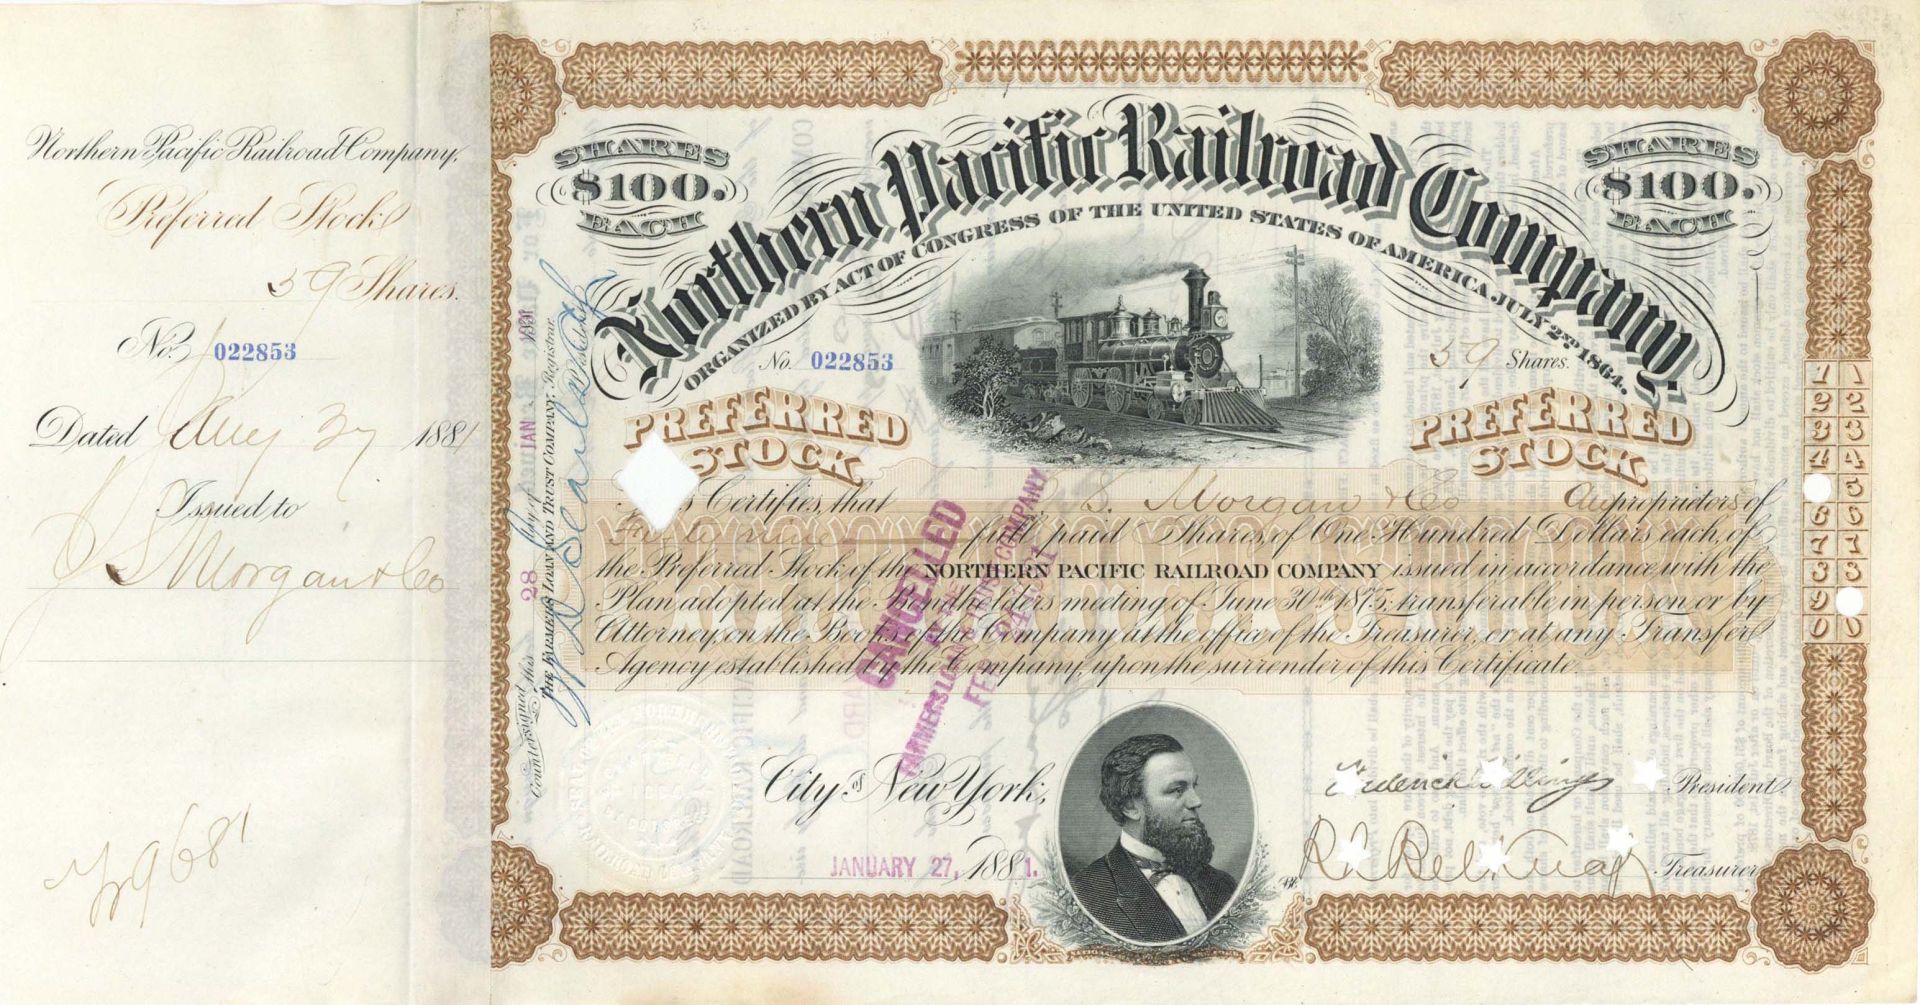 Northern Pacific Railroad Company,
Preferred Stock
59 Shares.
No. 022853
Dated Jany 27 1881
Issued to
J S Morgan & Co
SHARES
$100.
EACH
Northern Pacific Railroad Company.
SHARES
$100.
EACH
ORGANIZED BY ACT OF CONGRESS OF THE UNITED STATES OF AMERICA, JULY 2ND 1864.
No. 022853
59 Shares.
PREFERRED
STOCK
PREFERRED
STOCK
Certifies, that J. S. Morgan & Co Are proprietors of
Fifty nine full paid Shares, of One Hundred Dollars each, of
the Preferred Stock of the NORTHERN PACIFIC RAILROAD COMPANY issued in accordance with the
Plan adopted at the Bondholders meeting of June 30th 1875; transferable in person or by
Attorney, on the Books of the Company at the office of the Treasurer, or at any Transfer
Agency established by the Company, upon the surrender of this Certificate.
CANCELLED
BY THE
FARMERS LOAN & TRUST COMPANY
FEB 24 1881
City of New York,
JANUARY 27, 1881.
Frederick Billings President
Treasurer
Countersigned this 28 day of JAN 1881
THE FARMERS LOAN AND TRUST COMPANY, Registrar.
1 1
2 2
3 3
4 4
5
6 6
7 7
8 8
9
0 0